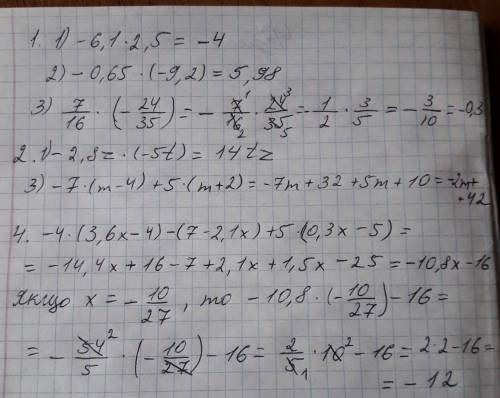 1. 1) -6,1·2,5 = -4
2) -0,65·(-9,2) = 5,98
3) 7/16 · (-24/35) = - 7¹/16₂ · 24³/35₅ = -1/2 · 3/5 = -3/10 = -0,3
2. 1) -2,8z·(-5t) = 14tz
3) -7·(m-4)+5·(m+2) = -7m+32+5m+10 = -2m+
+42
4. -4·(3,6x-4)-(7-2,1x)+5·(0,3x-5) =
= -14,4x+16-7+2,1x+1,5x-25 = -10,8x-16
якщо x = -10/27, то -10,8·(-10/27)-16 =
= -54²/5 · (-10/27)-16 = 2/5₁ · 10²-16 = 2·2-16 =
= -12